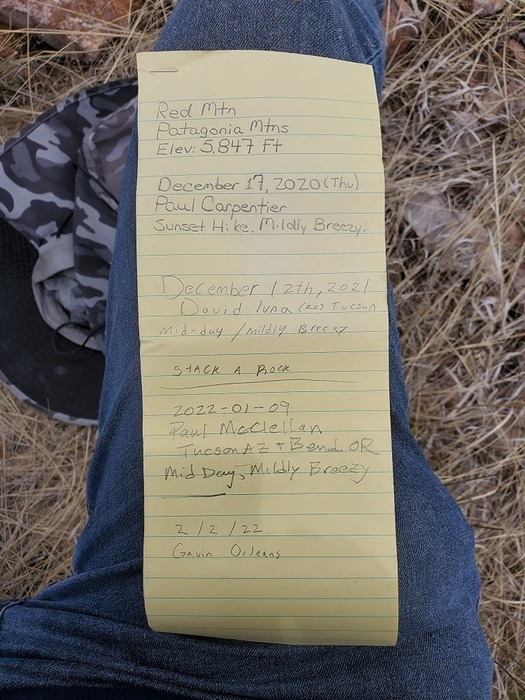 Red Mtn
Patagonia Mtns
Elev: 5,847 Ft
December 17, 2020 (Thu)
Paul Carpentier
Sunset Hike, Mildly Breezy.
December 12th, 2021
David luna (22) Tucson
Mid-day / Mildly Breezy
STACK A ROCK
2022-01-09
Paul McClellan
Tucson AZ + Bend OR
Mid Day, Mildly Breezy
2/2/22
Gavin Orleans